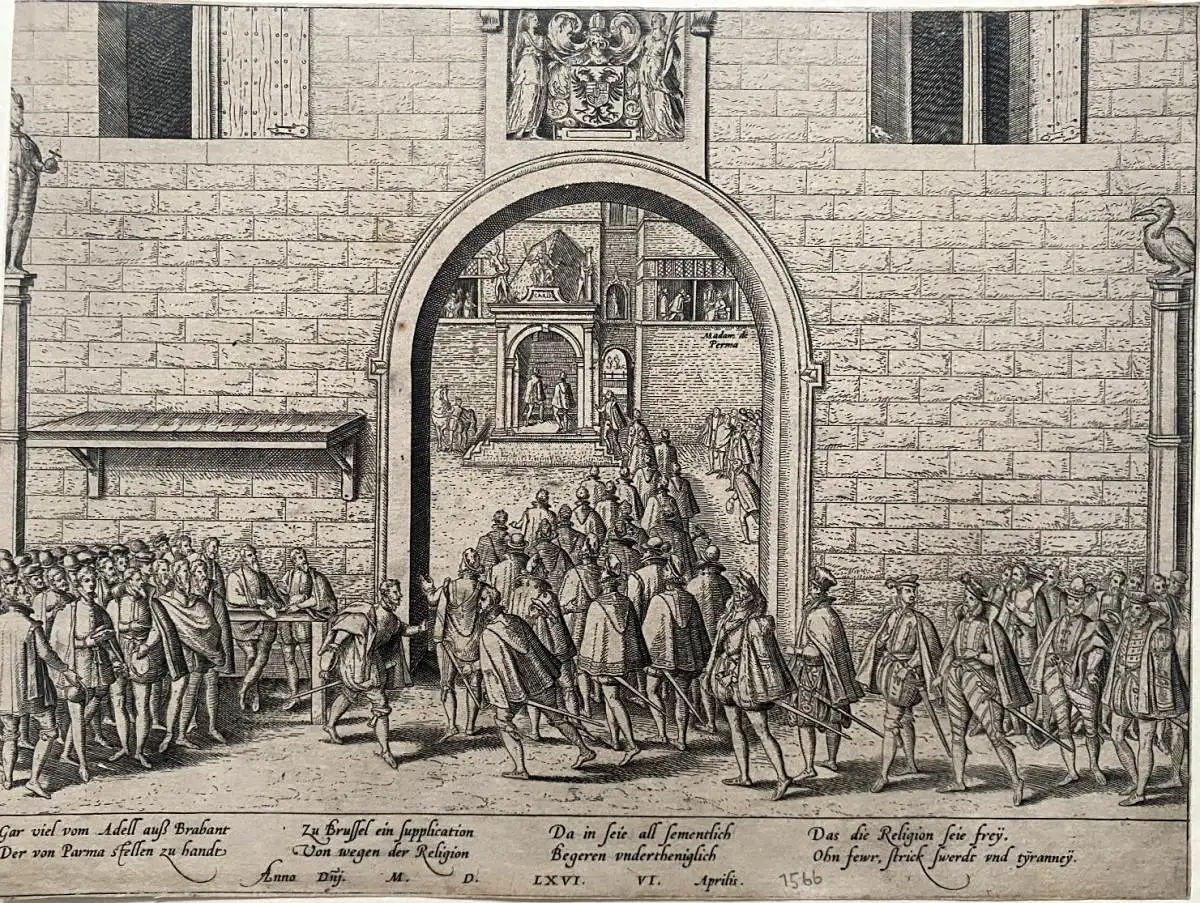 Madam de
Perma
Gar viel vom Adell auß Brabant
Der von Parma stellen zu handt
Zu Brussel ein supplication
Von wegen der Religion
Da in seie all sementlich
Begeren vndertheniglich
Das die Religion seie freÿ.
Ohn fewr, strick swerdt vnd tÿranneÿ.
Anno Dnj. M. D. LXVI. VI. Aprilis. 1566